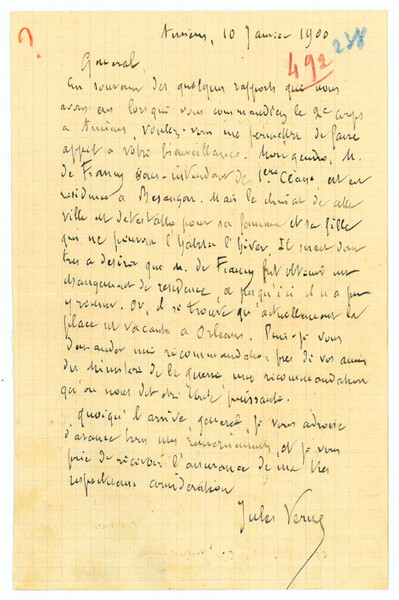 ?
Amiens, 10 Janvier 1900
492 238
Général,
En souvenir des quelques rapports que nous
avons eus lorsque vous commandiez le 2e corps
à Amiens, voulez-vous me permettre de faire
appel à votre bienveillance. Mon gendre, M.
de Francy sous-intendant de 1ère Classe, est en
résidence à Besançon. Mais le climat de cette
ville est détestable pour sa femme et sa fille
qui ne pourront l'habiter l'hiver. Il serait donc
très à désirer que M. de Francy fût obtenir un
changement de résidence, et jusqu'ici il n'a pu
y réussir. Or, il se trouve qu'actuellement la
place est vacante à Orléans. Puis-je vous
demander une recommandation près de vos amis
du Ministère de la guerre, une recommandation
qu'on nous dit être très puissante.
quoiqu'il arrive, général, je vous adresse
d'avance tous mes remerciements, et je vous
prie de recevoir l'assurance de ma très
respectueuse considération
Jules Verne